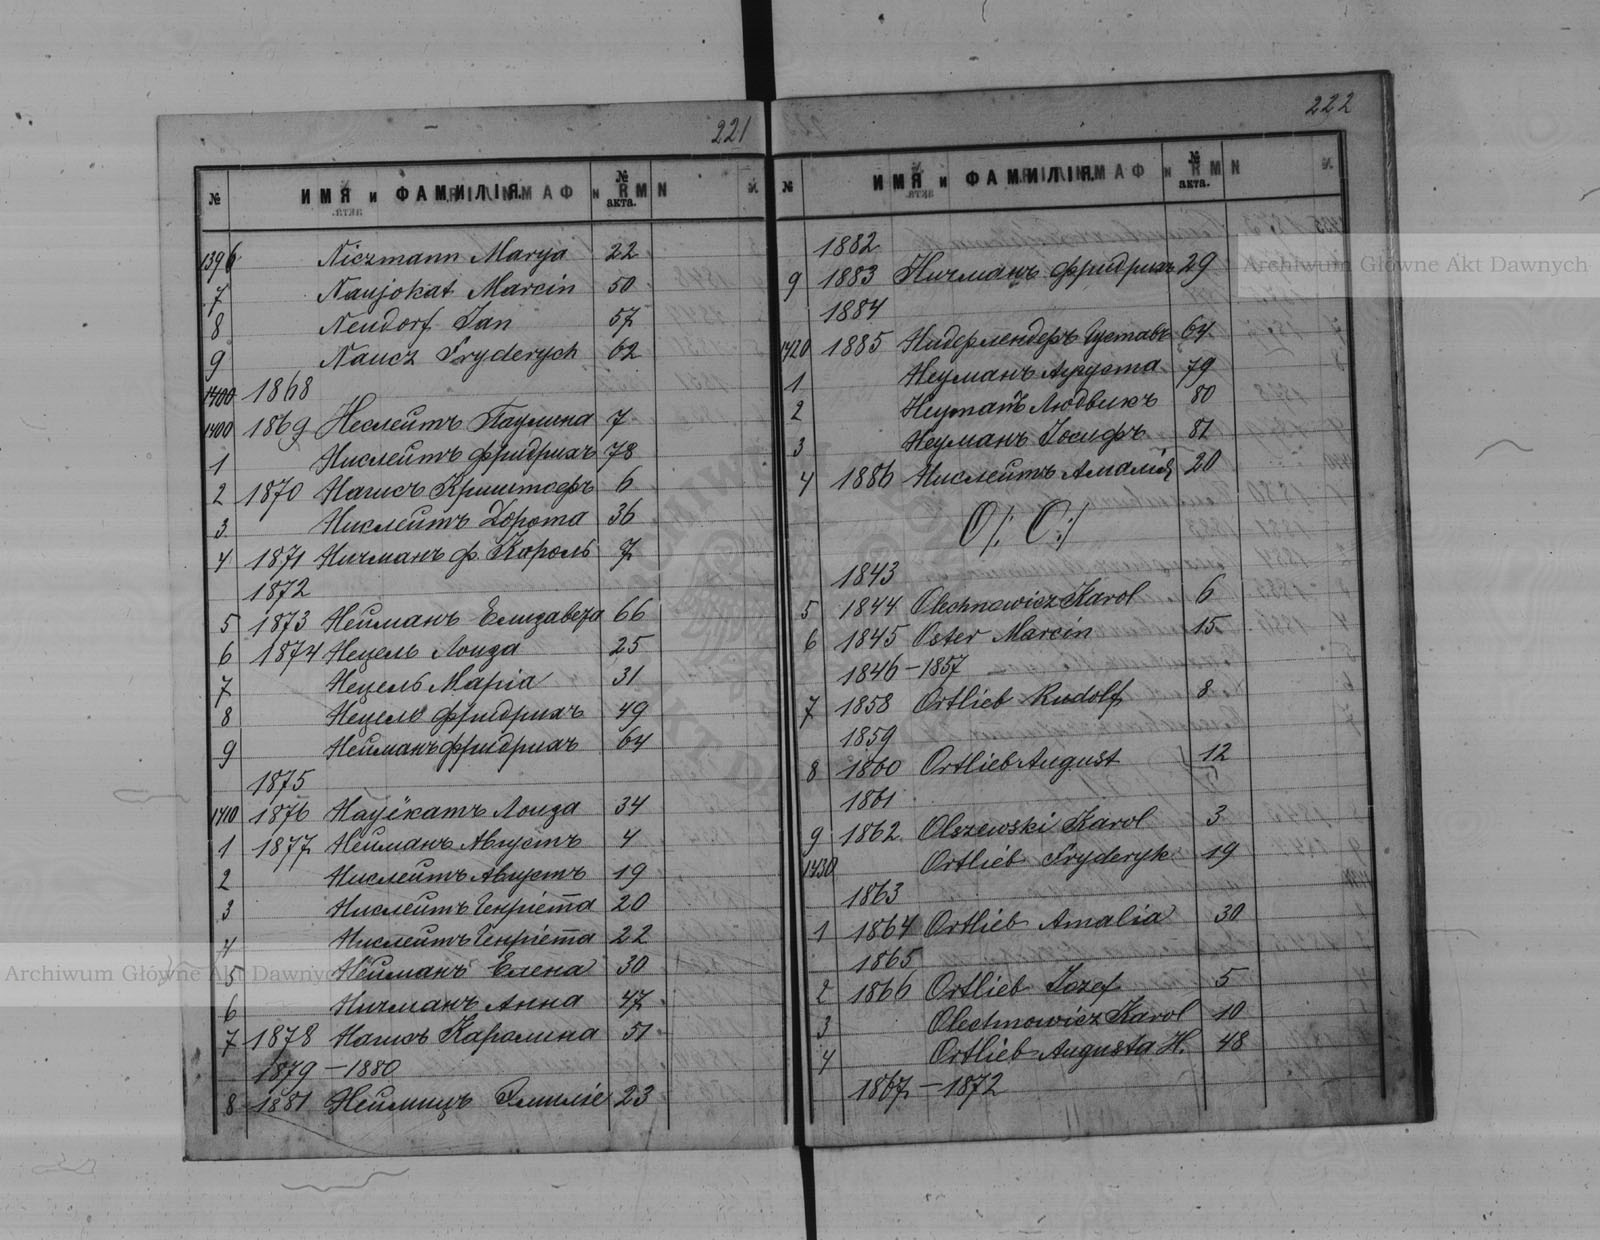 221
№ ИМЯ и ФАМИЛІЯ. № акта.
1396 Niczmann Marya 22
7 Naujokat Marcin 50
8 Neudorf Jan 57
9 Naucz Fryderych 62
1400 1868
1400 1869 Неслеитъ Паулина 7
1 Нислеитъ Фридрихъ 78
2 1870 Нагисъ Криштофъ 6
3 Нислеитъ Дорота 36
4 1871 Ничманъ ф. Король 7
1872
5 1873 Неиманъ Елизавета 66
6 1874 Нецель Лоиза 25
7 Нецель Марiа 31
8 Нецель Фридрихъ 49
9 Неиманъ Фридрихъ 64
1875
1410 1876 Науiокатъ Лоиза 34
1 1877 Неиманъ Августъ 4
2 Нислеитъ Августъ 19
3 Нислеитъ Генрiетта 20
4 Нислеитъ Генрiетта 22
5 Неиманъ Елена 30
6 Ничманъ Анна 47
7 1878 Нагисъ Каролина 51
1879 – 1880
8 1881 Неимицъ Эмилiе 23
222
№ ИМЯ и ФАМИЛІЯ. № акта.
1882
9 1883 Ничманъ Фридрихъ 29
1884
1420 1885 Нидерлендеръ Густавъ 64
1 Неуманъ Аугуста 79
2 Неуманъ Людвикъ 80
3 Неуманъ Iосифъ 81
4 1886 Нислеитъ Амалiя 20
O/: O:/
1843
5 1844 Olechnowicz Karol 6
6 1845 Oster Marcin 15
1846 – 1857
7 1858 Ortlieb Rudolf 8
1859
8 1860 Ortlieb August 12
1861
9 1862 Olszewski Karol 3
1430 Ortlieb Fryderyk 19
1863
1 1864 Ortlieb Amalia 30
1865
2 1866 Ortlieb Jozef 5
3 Olechnowicz Karol 10
4 Ortlieb Augusta H. 48
1867 – 1872
Archiwum Główne Akt Dawnych
Archiwum Główne Akt Dawnych